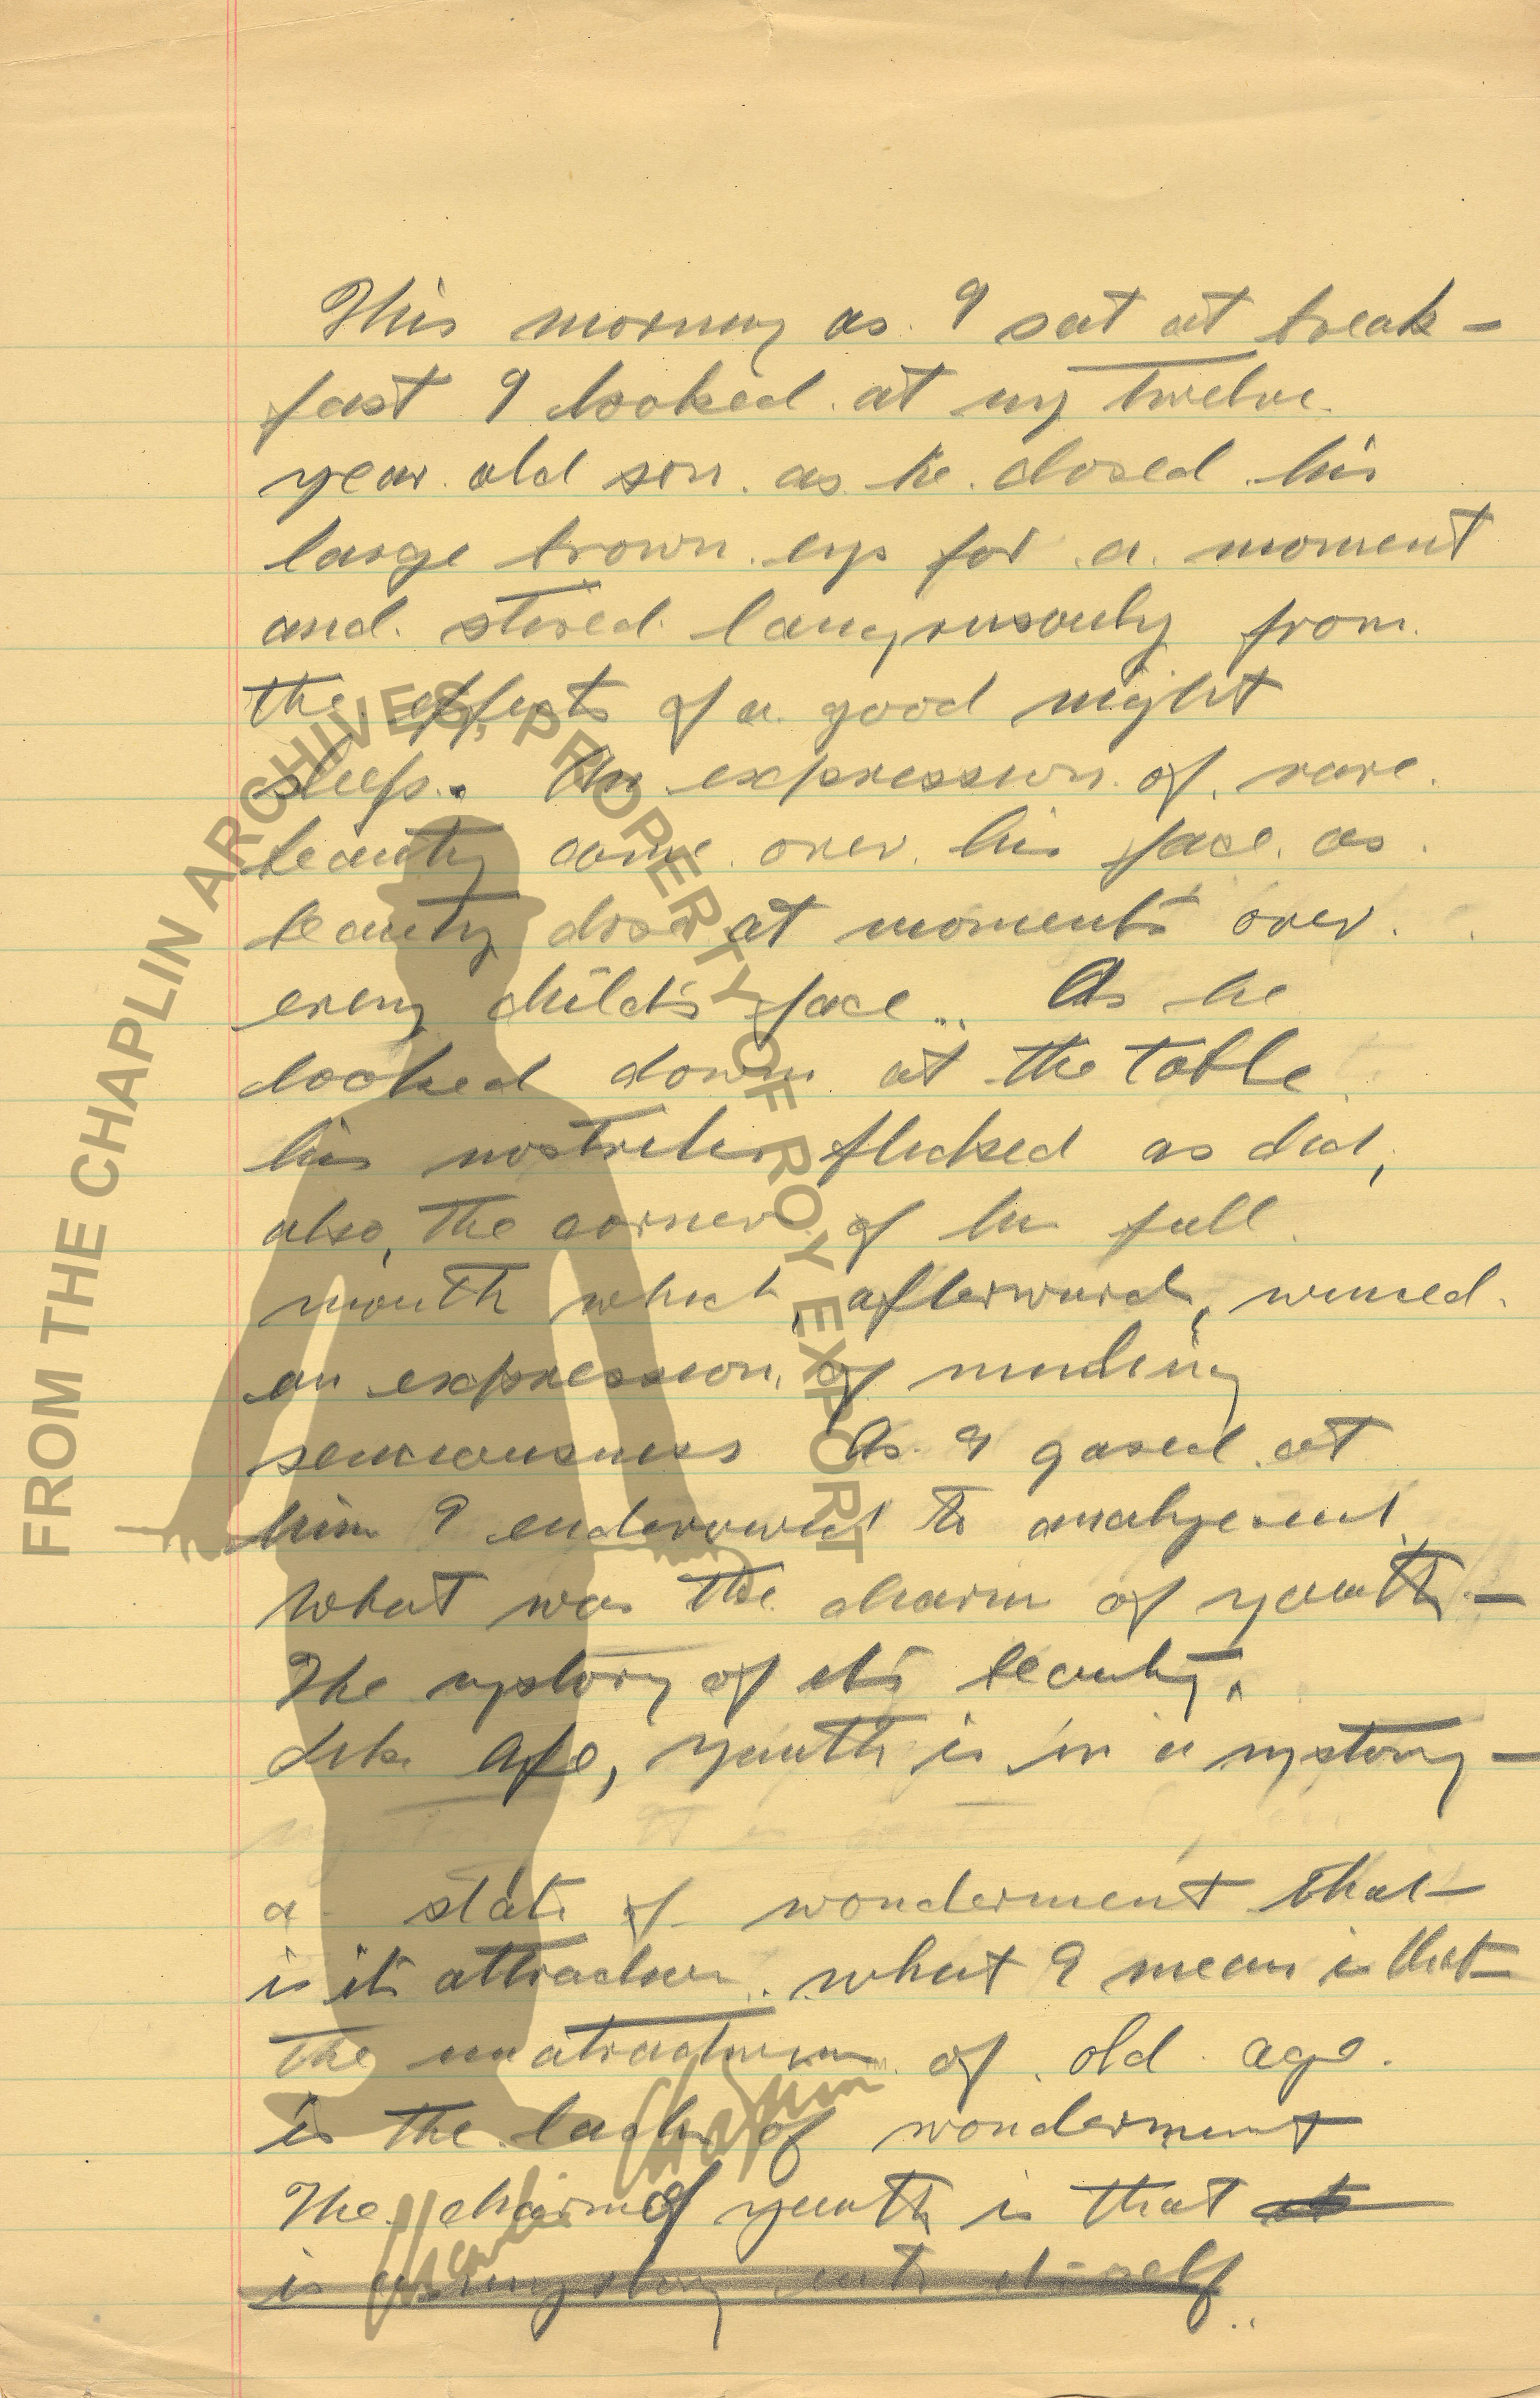 This morning as I sat at break-
fast I looked at my twelve
year old son as he closed his
large brown eys for a moment
and stired langrusouly from
the effects of a good night
sleep. An expression of rare
beauty came over his face as
beauty does at moments over
every child's face.. As he
looked down at the table
his nostriles flicked as did,
also, the corner of his full
mouth which, afterward,
an expression of smiling
As I gazed at
him I to
what was the charm of youth -
The mystory of its beauty.
Like Age, youth is in a mystory -
a state of wonderment that
is its attraction. what I mean is that
the unatraction of old age
is the lack of wonderment
The charm of youth is that it
is a mystory unto itself..
FROM THE CHAPLIN ARCHIVES, PROPERTY OF ROY EXPORT
Charlie Chaplin TM